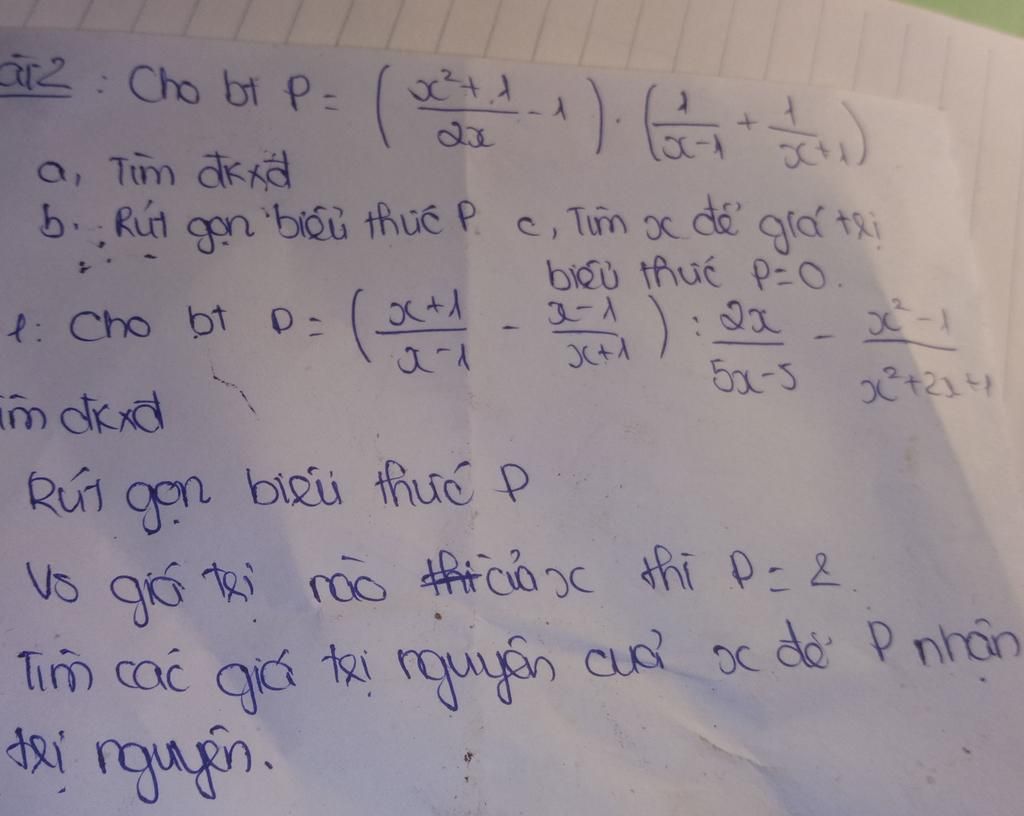 ài2 : Cho bt P = ( (x²+1)/(2x) - 1 ) . ( 1/(x-1) + 1/(x+1) )
a, Tìm đkxđ
b. Rút gọn biểu thức P. c, Tìm x để giá trị
biểu thức P=0.
1: Cho bt P = ( (x+1)/(x-1) - (x-1)/(x+1) ) : 2x/(5x-5) - (x²-1)/(x²+2x+1)
ìm đkxđ
Rút gọn biểu thức P
Vs giá trị nào của x thì P = 2.
Tìm các giá trị nguyên của x để P nhận
trị nguyên.